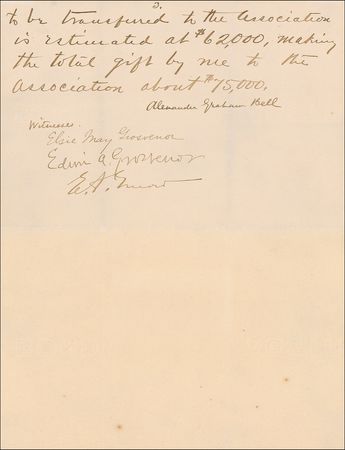 3.
to be transferred to the Association
is estimated at $62,000, making
the total gift by me to the
Association about $75,000.
Alexander Graham Bell
Witnesses.
Elsie May Grosvenor
Edwin A. Grosvenor